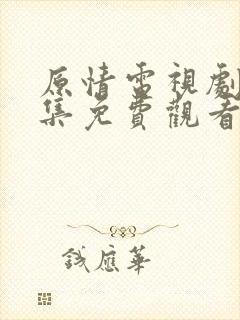 原情電視劇
集免費觀看
錢應華